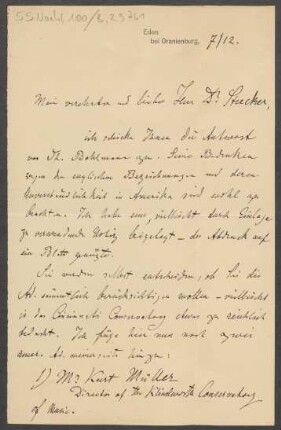 SS Nachl. 100/B, 29761
Eden
bei Oranienburg, 7/12.
Mein verehrter und lieber Herr Dr. Stecker,
ich schicke Ihnen die Antwort
von Th. Bohlmann ein. Seine Bedenken
wegen der englischen Bezeichnungen und deren
Unverständlichkeit in Amerika sind wohl zu
beachten. Ich habe eine, vielleicht durch Einlage
zu verwendende Notiz beigelegt – der Abdruck auf
ein Blatt genügt.
Sie werden selbst entscheiden, ob Sie die
Ad. sämmtlich berücksichtigen wollen – vielleicht
ist das Cincinnati Conservatory etwas zu reichlich
bedacht. Ich füge hier nur noch
amer. Ad. meinerseits hinzu:
1) Mr Kurt Müller
Director of the Klindworth Conservatory
of Music.